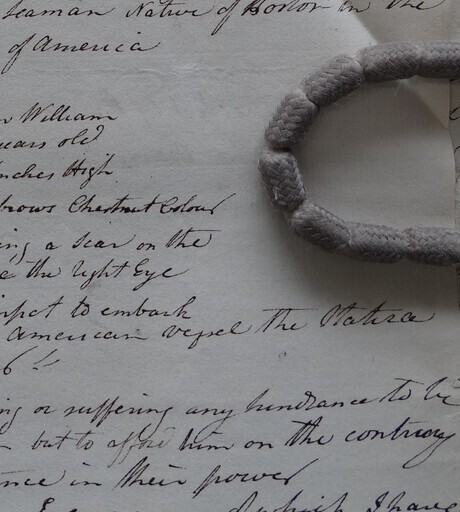 Seaman Native of Boston in the
of America
William
years old
Inches High
brows Chestnut Colour
ing a scar on the
the right Eye
to embark
American vessel the
6
ing or suffering any hindrance to be
but to afford him on the contrary
nce in their power
which I have